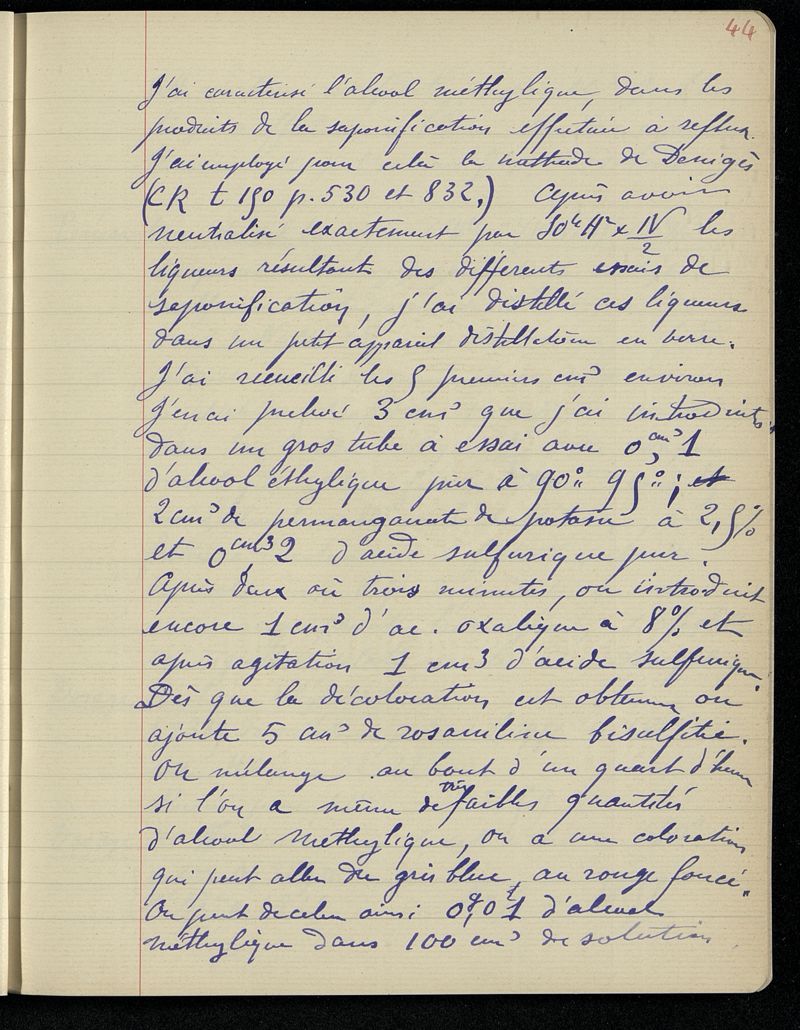 44
J'ai caracterisé l'alcool méthylique, dans les
produits de la saponification effectuée à reflux.
J'ai employé pour cela la méthode de Denigès
(CR t 150 p. 530 et 832.) Après avoir
neutralisé exactement par SO⁴H² × IV/2 les
liqueurs résultant des différents essais de
saponification, j'ai distillé ces liqueurs
dans un petit appareil distillatoire en verre.
J'ai recueilli les 5 premiers cm³ environ
J'en ai prélevé 3 cm³ que j'ai introduits
dans un gros tube à essai avec 0,cm³ 1
d'alcool éthylique pur à 90°° 95°° ; et
2 cm³ de permanganate de potasse à 2,5%
et 0,cm3 2 d'acide sulfurique pur.
Après deux où trois minutes, on introduit
encore 1 cm³ d'ac. oxalique à 8% et
après agitation 1 cm3 d'acide sulfurique.
Dès que la décoloration est obtenue on
ajoute 5 cm³ de rosaniline bisulfitée.
On mélange au bout d'un quart d'heure
si l'on a même de très faibles quantités
d'alcool méthylique, on a une coloration
qui peut aller du gris bleu, au rouge foncé.
On peut deceler ainsi 0,g01 d'alcool
méthylique dans 100 cm³ de solution.